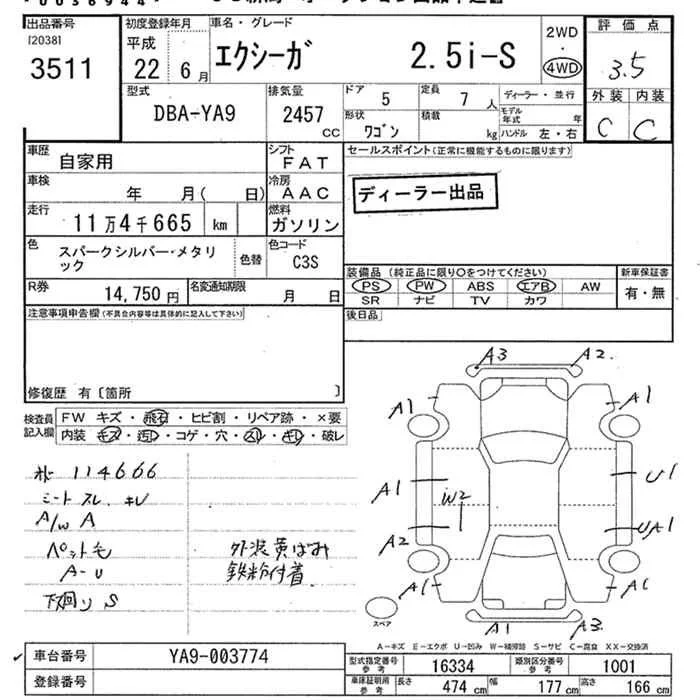 出品番号 初度登録年月 車名・グレード 2WD 評価点
120381 平成 エクシーガ 2.5i-S ・ 3.5
3511 22 年 6 月 4WD 外装 内装
C C
型式 排気量 ドア 5 定員 7 人 ディーラー・並行
DBA-YA9 2457 cc 形状 ワゴン 積載 kg モデル年式 年
ハンドル 左・右
車歴 自家用 シフト FAT セールスポイント(正常に機能するものに限ります)
車検 年 月( 日) 冷房 AAC ディーラー出品
走行 11万4千665 km 燃料 ガソリン
色 スパークシルバー・メタリック 色替 色コード C3S
装備品(純正品に限り○をつけてください) 新車保証書
R券 14,750円 名変通知期限 月 日 PS PW ABS エアB AW 有・無
SR ナビ TV カワ
注意事項申告欄(不具合内容等は具体的に記入して下さい) 後日品
修復歴 有〔箇所 〕
検査員記入欄 FW キズ・飛石・ヒビ割・リペア跡・×要
内装 キズ・汚レ・コゲ・穴・スレ・キレ・破レ
114666
シート スレ キレ
A/W A
ペット毛
A-U
下廻り S
外装黄ばみ
鉄粉付着
A3 A2
A1 A1
A1 W2 U1
A2 UA1
A1 A1 A3
スペア
A-キズ E-エクボ U-凹み W-補修跡 S-サビ C-腐食 XX-交換済
車台番号 YA9-003774 型式指定番号 参考 16334 類別区分番号 参考 1001
登録番号 車庫証明用 参考 長さ 474 cm 幅 177 cm 高さ 166 cm